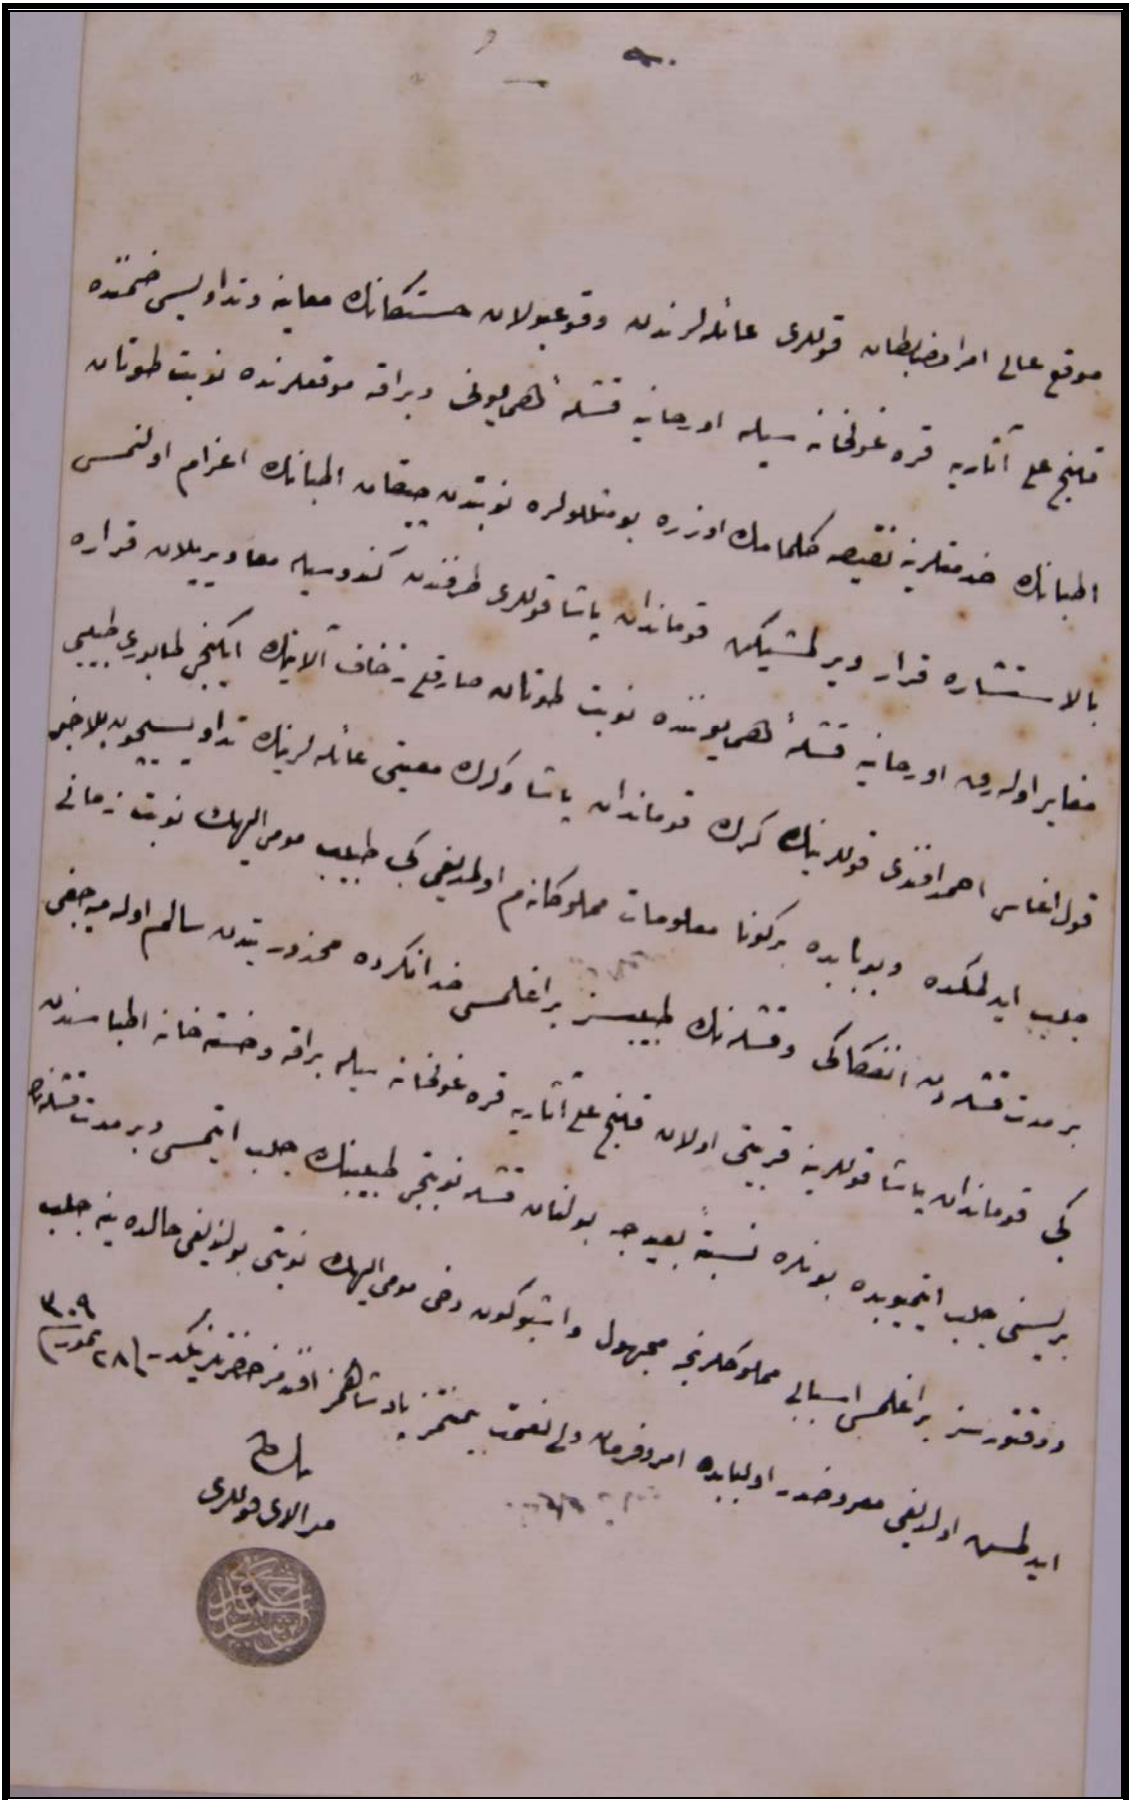 موقع عالی امرا وضابطان قوللری عائله لرندن وقوعبولان خستكانك معاینه وتداویسی ضمننده
قلنج علی آثاریه قره غولخانه سیله اورخانیه قشلهٔ همایونی وبراقه موقعلرنده نوبت طوتان
اطبانك خدمتلرینه نقیصه كلمامك اوزره بومثللولره نوبتدن چیقان اطبانك اعزام اولنمسی
بالاستشاره قرار ویرلمشیكن قوماندان پاشا قوللری طرفندن كندوسیله معا ویریلان قراره
مغایر اوله رق اورخانیه قشلهٔ همایوننده نوبت طوتان صارقلی زخاف آلاینك ایكنجی طابوری طبیبی
قول اغاسی احمد افندی قوللرینك كرك قوماندان پاشا وكرك معیتی عائله لرینك تداویسیچون بلاخبر
جلب ایدلمكده وبوبابده بركونا معلومات مملوكانه م اولمدیغی كبی طبیب مومی الیهك نوبت زمانی
بر مدت قشله دن انفكاكی وقشله نك طبیبسز براغلمسی خدانكرده محذوریتدن سالم اوله میه جغی
كبی قوماندان پاشا قوللرینه قربیتی اولان قلنج علی آثاریه قره غولخانه سیله براقه وخسته خانه اطباسندن
بریسنی جلب ایتمیوبده بونلره نسبةً بعیدجه بولنان قشله نوبتجی طبیبنك جلب ایتمسی وبر مدت قشله نك
دوقتورسز براغلمسی اسبابی مملوكلرنجه مجهول واشبوكون دخی مومی الیهك نوبتی بولندیغی حالده ینه جلب
ایدلمش اولدیغی معروضدر اولبابده امر وفرمان ولی نعمت بیمنتمز پادشاهمز افندمز حضرتلرینكدر فی ٢٨ تموز
٣٠٩
بنده
میرالای قوللری